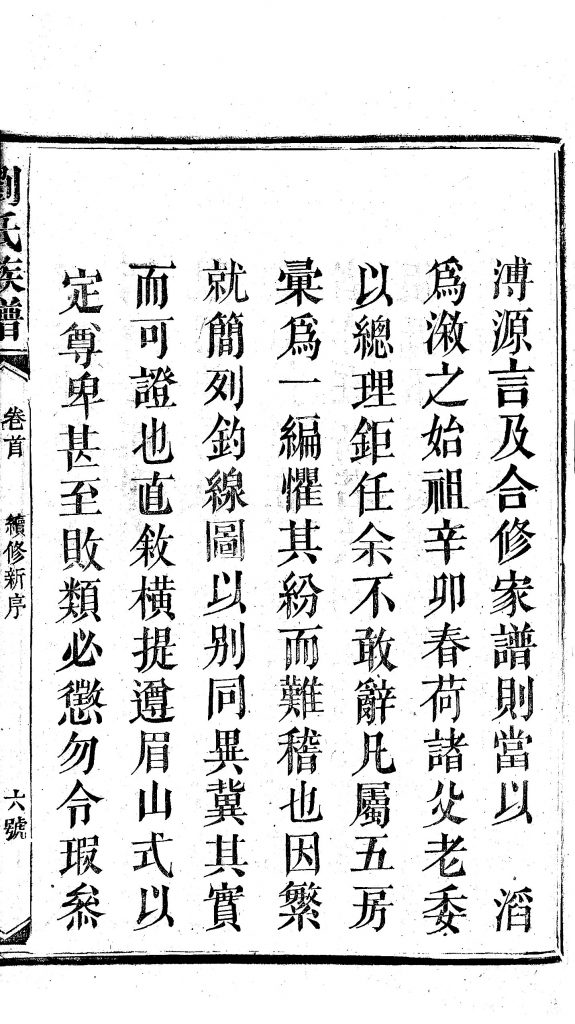 溥源言及合修家譜則當以　滔
爲漵之始祖辛卯春荷諸父老委
以總理鉅任余不敢辭凡屬五房
彙爲一編懼其紛而難稽也因繁
就簡列釣線圖以别同異冀其實
而可證也直敘橫提遵眉山式以
定尊卑甚至敗類必懲勿令瑕叅
劉氏族譜
卷首　續修新序　六號